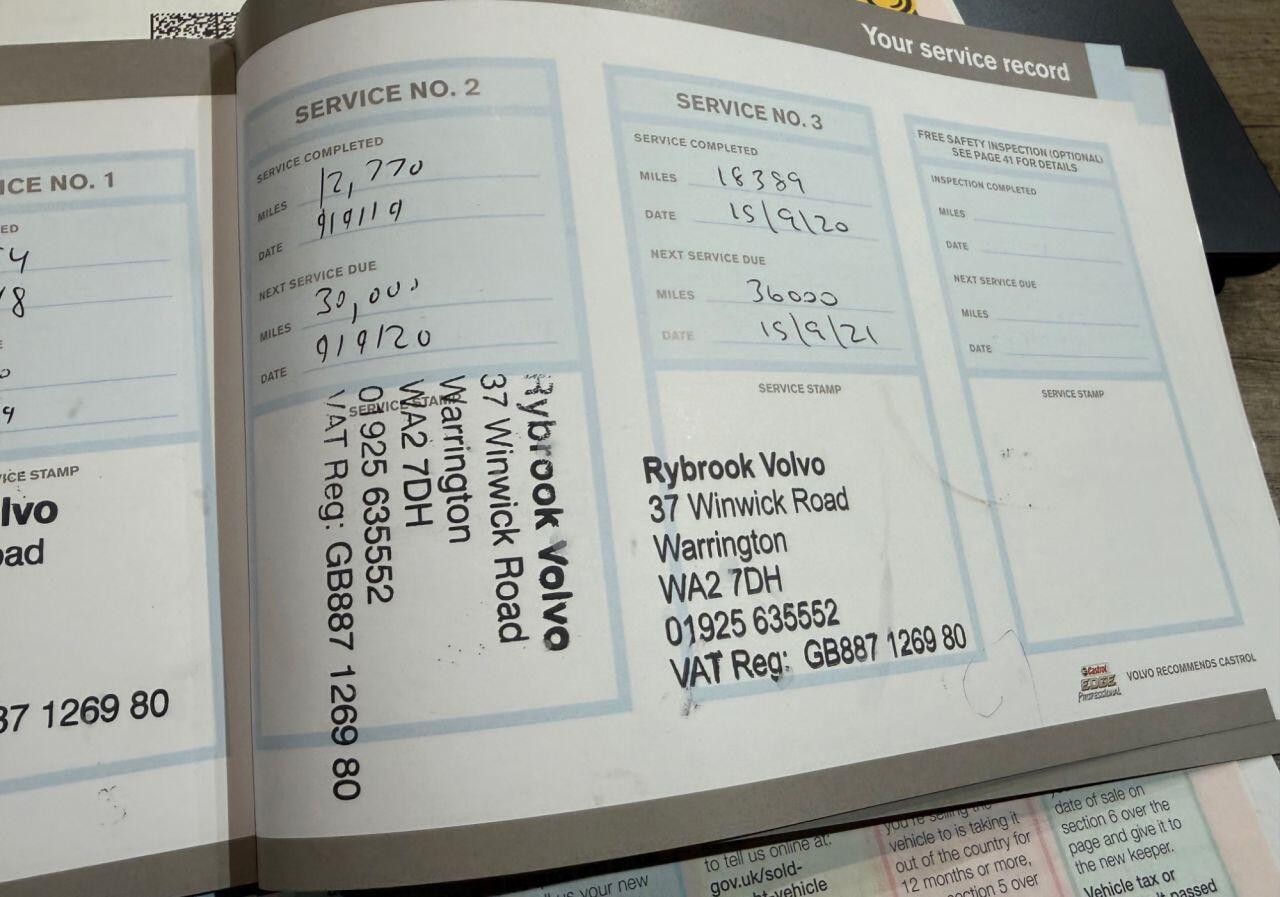 Your service record
ICE NO. 1
ED
4
8
9
ICE STAMP
lvo
ad
37 1269 80
SERVICE NO. 2
SERVICE COMPLETED
MILES 12,770
DATE 9/9/19
NEXT SERVICE DUE
MILES 30,000
DATE 9/9/20
SERVICE STAMP
Rybrook Volvo
37 Winwick Road
Warrington
WA2 7DH
01925 635552
VAT Reg: GB887 1269 80
SERVICE NO. 3
SERVICE COMPLETED
MILES 18389
DATE 15/9/20
NEXT SERVICE DUE
MILES 36000
DATE 15/9/21
SERVICE STAMP
Rybrook Volvo
37 Winwick Road
Warrington
WA2 7DH
01925 635552
VAT Reg: GB887 1269 80
FREE SAFETY INSPECTION (OPTIONAL)
SEE PAGE 41 FOR DETAILS
INSPECTION COMPLETED
MILES
DATE
NEXT SERVICE DUE
MILES
DATE
SERVICE STAMP
Castrol
EDGE
PROFESSIONAL
VOLVO RECOMMENDS CASTROL
us your new
to tell us online at:
gov.uk/sold-
vehicle
you're selling the
vehicle to is taking it
out of the country for
12 months or more,
ction 5 over
date of sale on
section 6 over the
page and give it to
the new keeper.
Vehicle tax or
passed